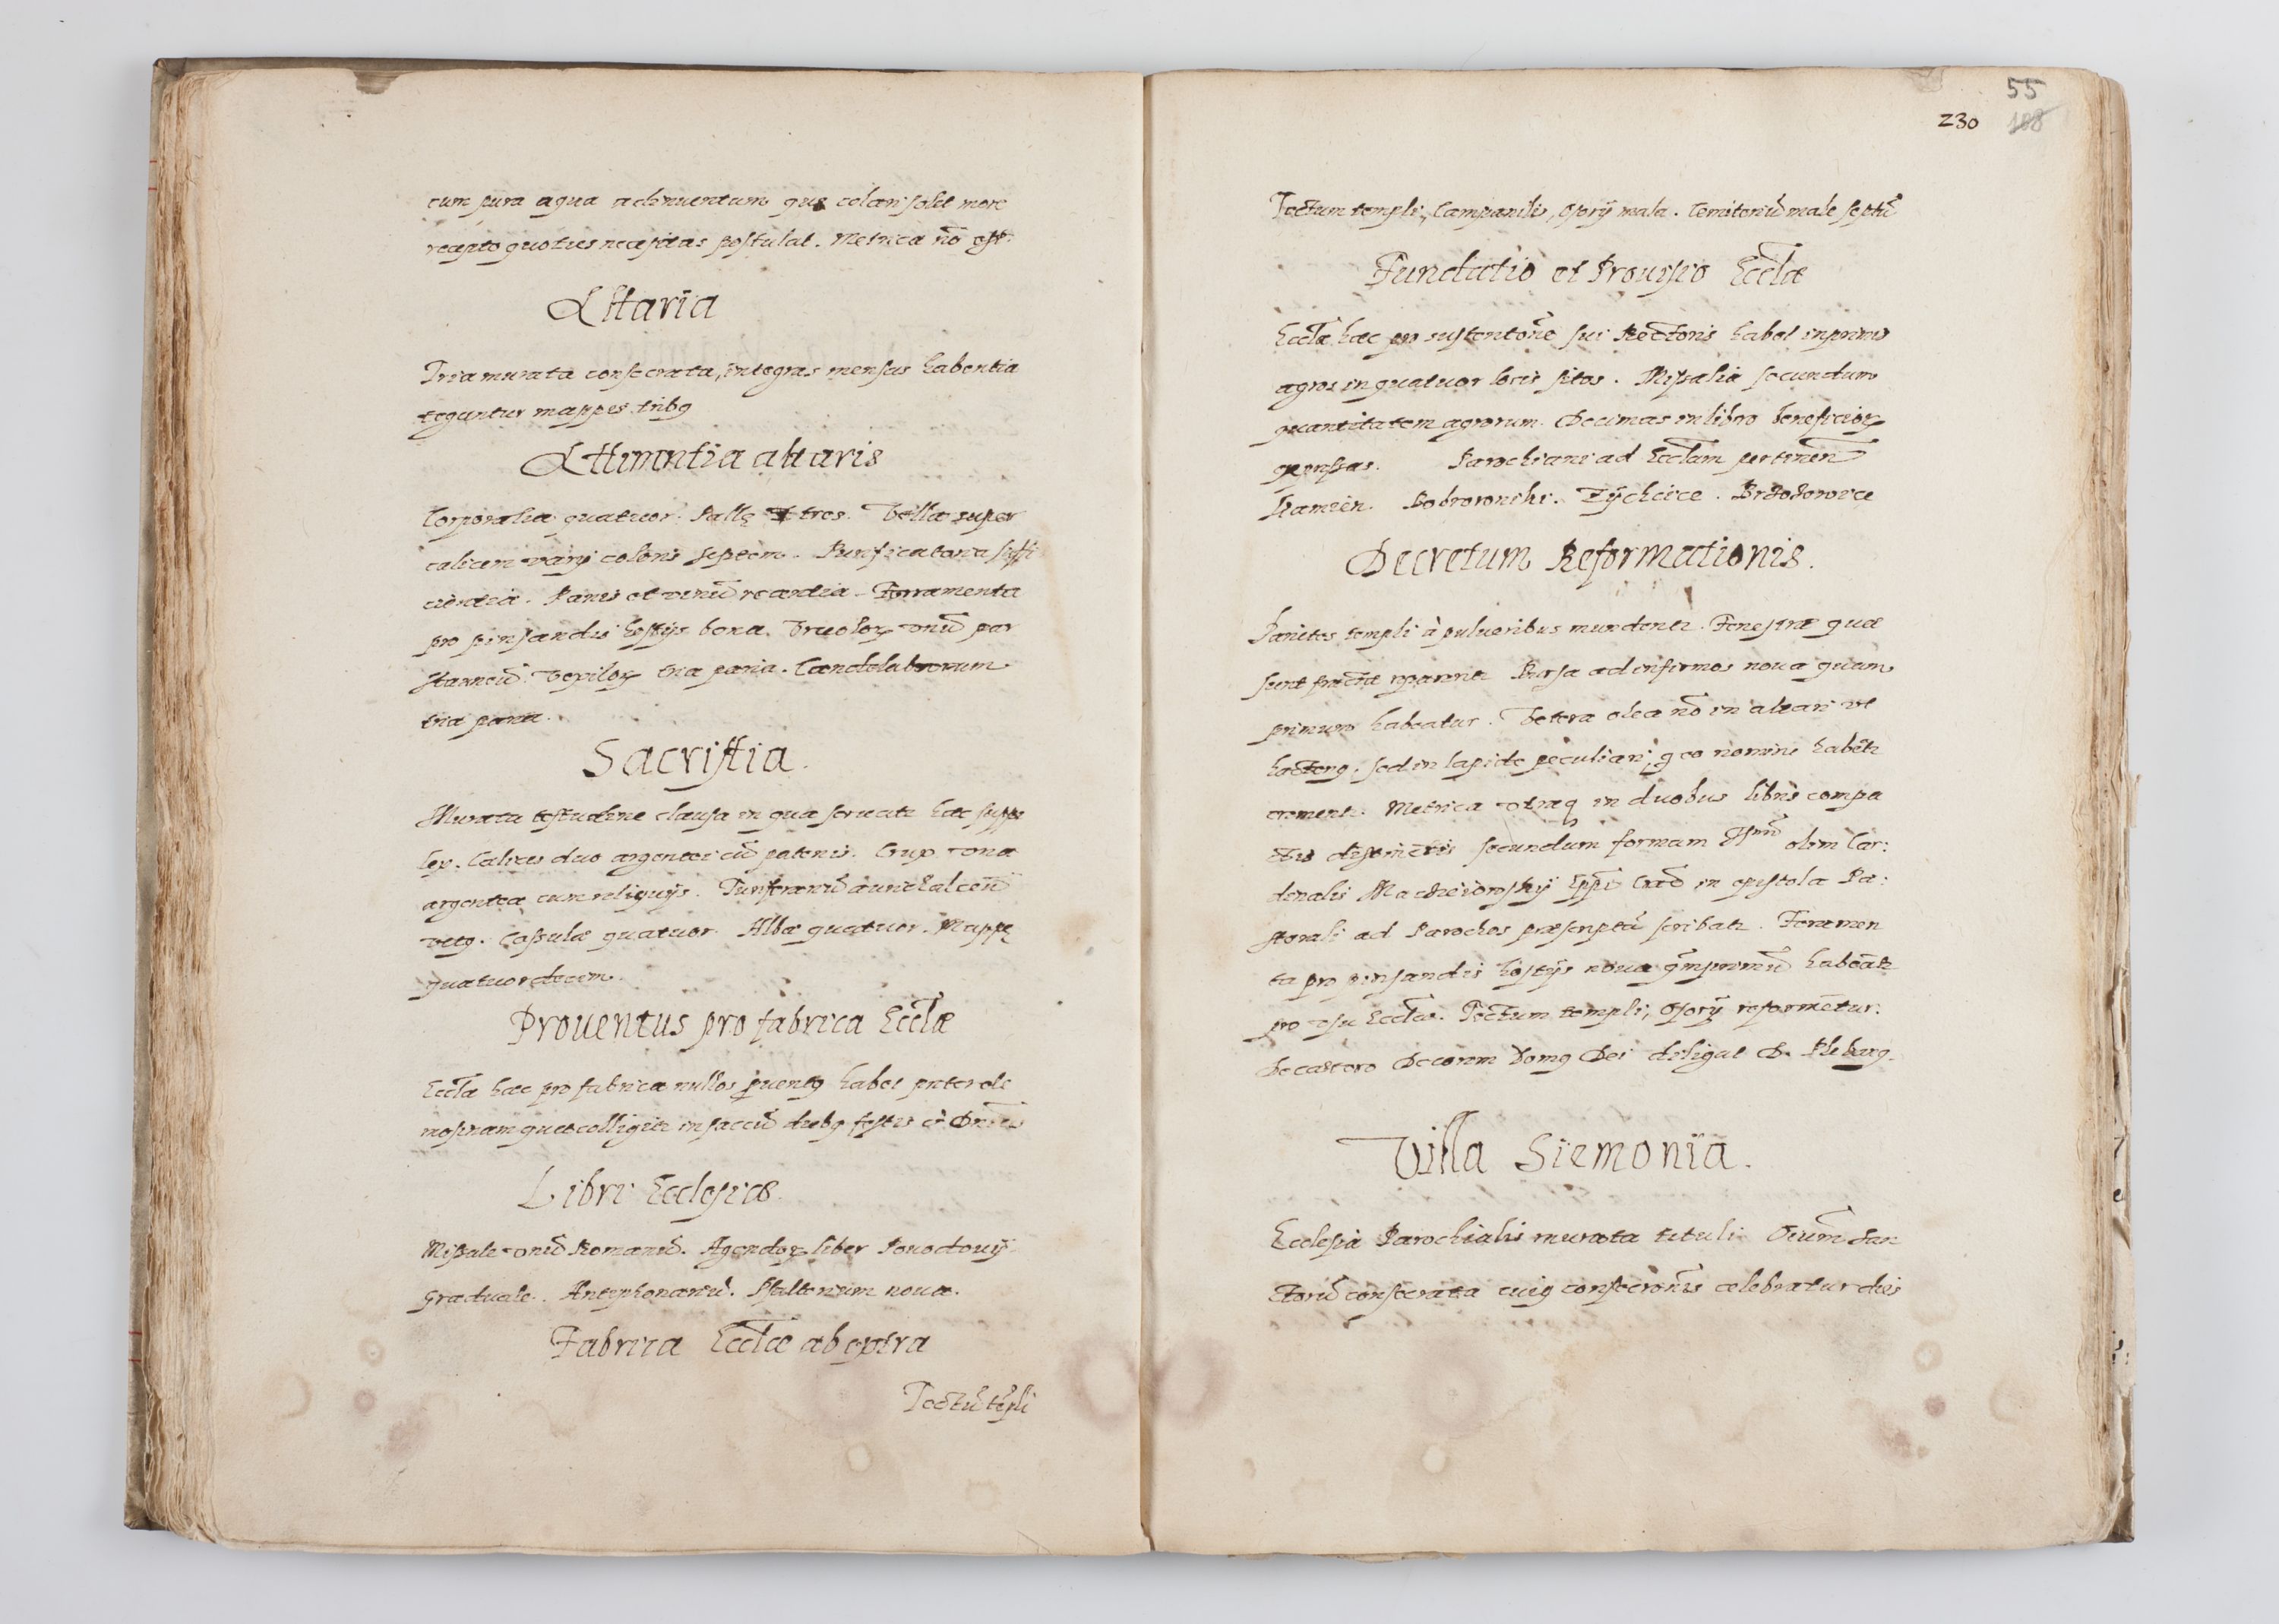 cum pura aqua ademventum quę celari solet more
recepto quoties necessitas postulat. Metrica nõ est.
Altaria
Tria murata consecrata, integras mensas habentia
teguntur mappes tribq
Attinentia altaris
Corporalia quatuor. Pallę tres. Vella super
calicem varij coloris septem. Purificatoria suffi
cientia. Panis et vinũ recentia. Ferramenta
pro pinsandis hostijs bona. Vrceoloꝝ vnũ par
stanneũ. Vexiloꝝ tria paria. Candelabrorum
tria paria.
Sacristia.
Murata testudine clausa in qua servatr hæc suppe
lex. Calices duo argentei cũ patenis. Crux vna
argentea cum reliquijs. Turiferariũ aurichalceũ
vetq. Casulæ quatuor. Albæ quatuor. Mappę
quatuordecem.
Proventus pro fabrica Ecclæ
Eccla hæc pro fabrica nullos pventq habet præter ele
mosinam quæ colligitr in saccũ diebq festis et Dnicis
Libri Ecclesiæ
Missale vnũ Romanũ. Agendoꝝ liber Powodowij
Graduale. Antiphonariũ. Psalterium nova.
Fabrica Ecclæ ab extra
Tectũ tẽpli
55
230 188
Tectum templi, Campanilis, Ossrij mala. Cemiteriũ male septũ
Fundatio et Provisio Ecclæ
Eccla hæc pro sustentone sui Rectoris habet inprimis
agros in quatuor locis sitos. Missalia secundum
quantitatem agrorum. Decimas in libro beneficioꝝ
expressas. Parochiani ad Ecclam pertinen
Kamien. Bobrowniki. Zÿchcice. Brzozowice
Decretum Reformationis.
Parietes templi à pulveribus mundentr. Fenestræ quæ
sunt fractæ reparentr Bursa ad infirmos nova quam
primum habeatur. Vetera olea nõ in altari vt
hactenq. sed in lapide peculiari, q eo nomine habetr
crementr. Metrica vtraq in duobus libris compa
ctis distinctis secundum formam Illmi olim Car:
dinalis Macieiowskij Eppi Crac in epistola Pa:
storali ad Parochos præscriptã scribatr. Feramen
ta pro pinsandis hostijs nova qmprimũ habeatr
pro vsu Ecclæ. Tectum templi, Ossorij reformetur.
De cætero Decorem Domq Dei diligat D. Plebanq.
Villa Siemonia.
Ecclesia Parochialis murata tituli Oium San
ctorũ consecrata cuiq consecronis celebratur dies